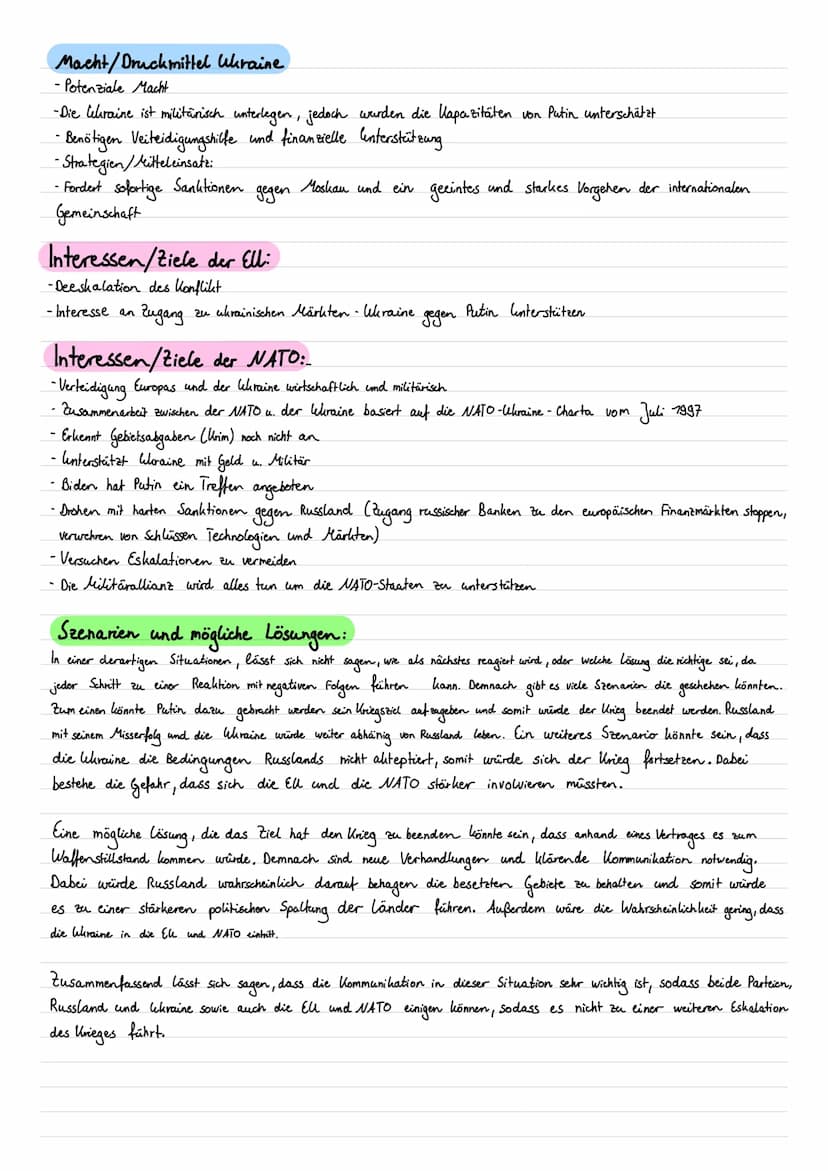 Macht/Druckmittel Ukraine
- Potenziale Macht
-Die Ukraine ist militärisch unterlegen, jedoch wurden die Kapazitäten von Putin unterschätzt
- Benötigen Veiteidigungshilfe und finanzielle Unterstützung
- Strategien/Mitteleinsatz:
- Fordert sofortige Sanktionen gegen Moskau und ein geeintes und starkes Vorgehen der internationalen
Gemeinschaft
Interessen/Ziele der EU:
- Deeskalation des Konflikt
- Interesse an Zugang zu ukrainischen Märkten - Ukraine gegen Putin Unterstützen
Interessen/Ziele der NATO:
- Verteidigung Europas und der Ukraine wirtschaftlich und militärisch
- Zusammenarbeit zwischen der NATO u. der Ukraine basiert auf die NATO-Ukraine-Charta vom Juli 1997
- Erkennt Gebietsabgaben (Krim) noch nicht an
- Unterstützt Ukraine mit Geld u. Militär
- Biden hat Putin ein Treffen angeboten
- Drohen mit harten Sanktionen gegen Russland (Zugang russischer Banken zu den europäischen Finanzmärkten stoppen,
verwehren von Schlüssen Technologien und Märkten)
- Versuchen Eskalationen zu vermeiden
- Die Militärallianz wird alles tun um die NATO-Staaten zu unterstützen
Szenarien und mögliche Lösungen:
In einer derartigen Situationen, lässt sich nicht sagen, wie als nächstes reagiert wird, oder welche Lösung die richtige sei, da
jeder Schritt zu einer Reaktion mit negativen Folgen führen kann. Demnach gibt es viele Szenarien die geschehen könnten.
Zum einen könnte Putin dazu gebracht werden sein Kriegsziel aufzugeben und somit würde der Krieg beendet werden. Russland
mit seinem Misserfolg und die Ukraine würde weiter abhänig von Russland leben. Ein weiteres Szenario könnte sein, dass
die Ukraine die Bedingungen Russlands nicht akzeptiert, somit würde sich der Krieg fortsetzen. Dabei
bestehe die Gefahr, dass sich die EU und die NATO stärker involvieren müssten.
Eine mögliche Lösung, die das Ziel hat den Krieg zu beenden könnte sein, dass anhand eines Vertrages es zum
Waffenstillstand kommen würde. Demnach sind neue Verhandlungen und klärende Kommunikation notwendig.
Dabei würde Russland wahrscheinlich darauf behagen die besetzten Gebiete zu behalten und somit würde
es zu einer stärkeren politischen Spaltung der Länder führen. Außerdem wäre die Wahrscheinlichkeit gering, dass
die Ukraine in die EU und NATO eintritt.
Zusammenfassend lässt sich sagen, dass die Kommunikation in dieser Situation sehr wichtig ist, sodass beide Parteien,
Russland und Ukraine sowie auch die EU und NATO einigen können, sodass es nicht zu einer weiteren Eskalation
des Krieges führt.